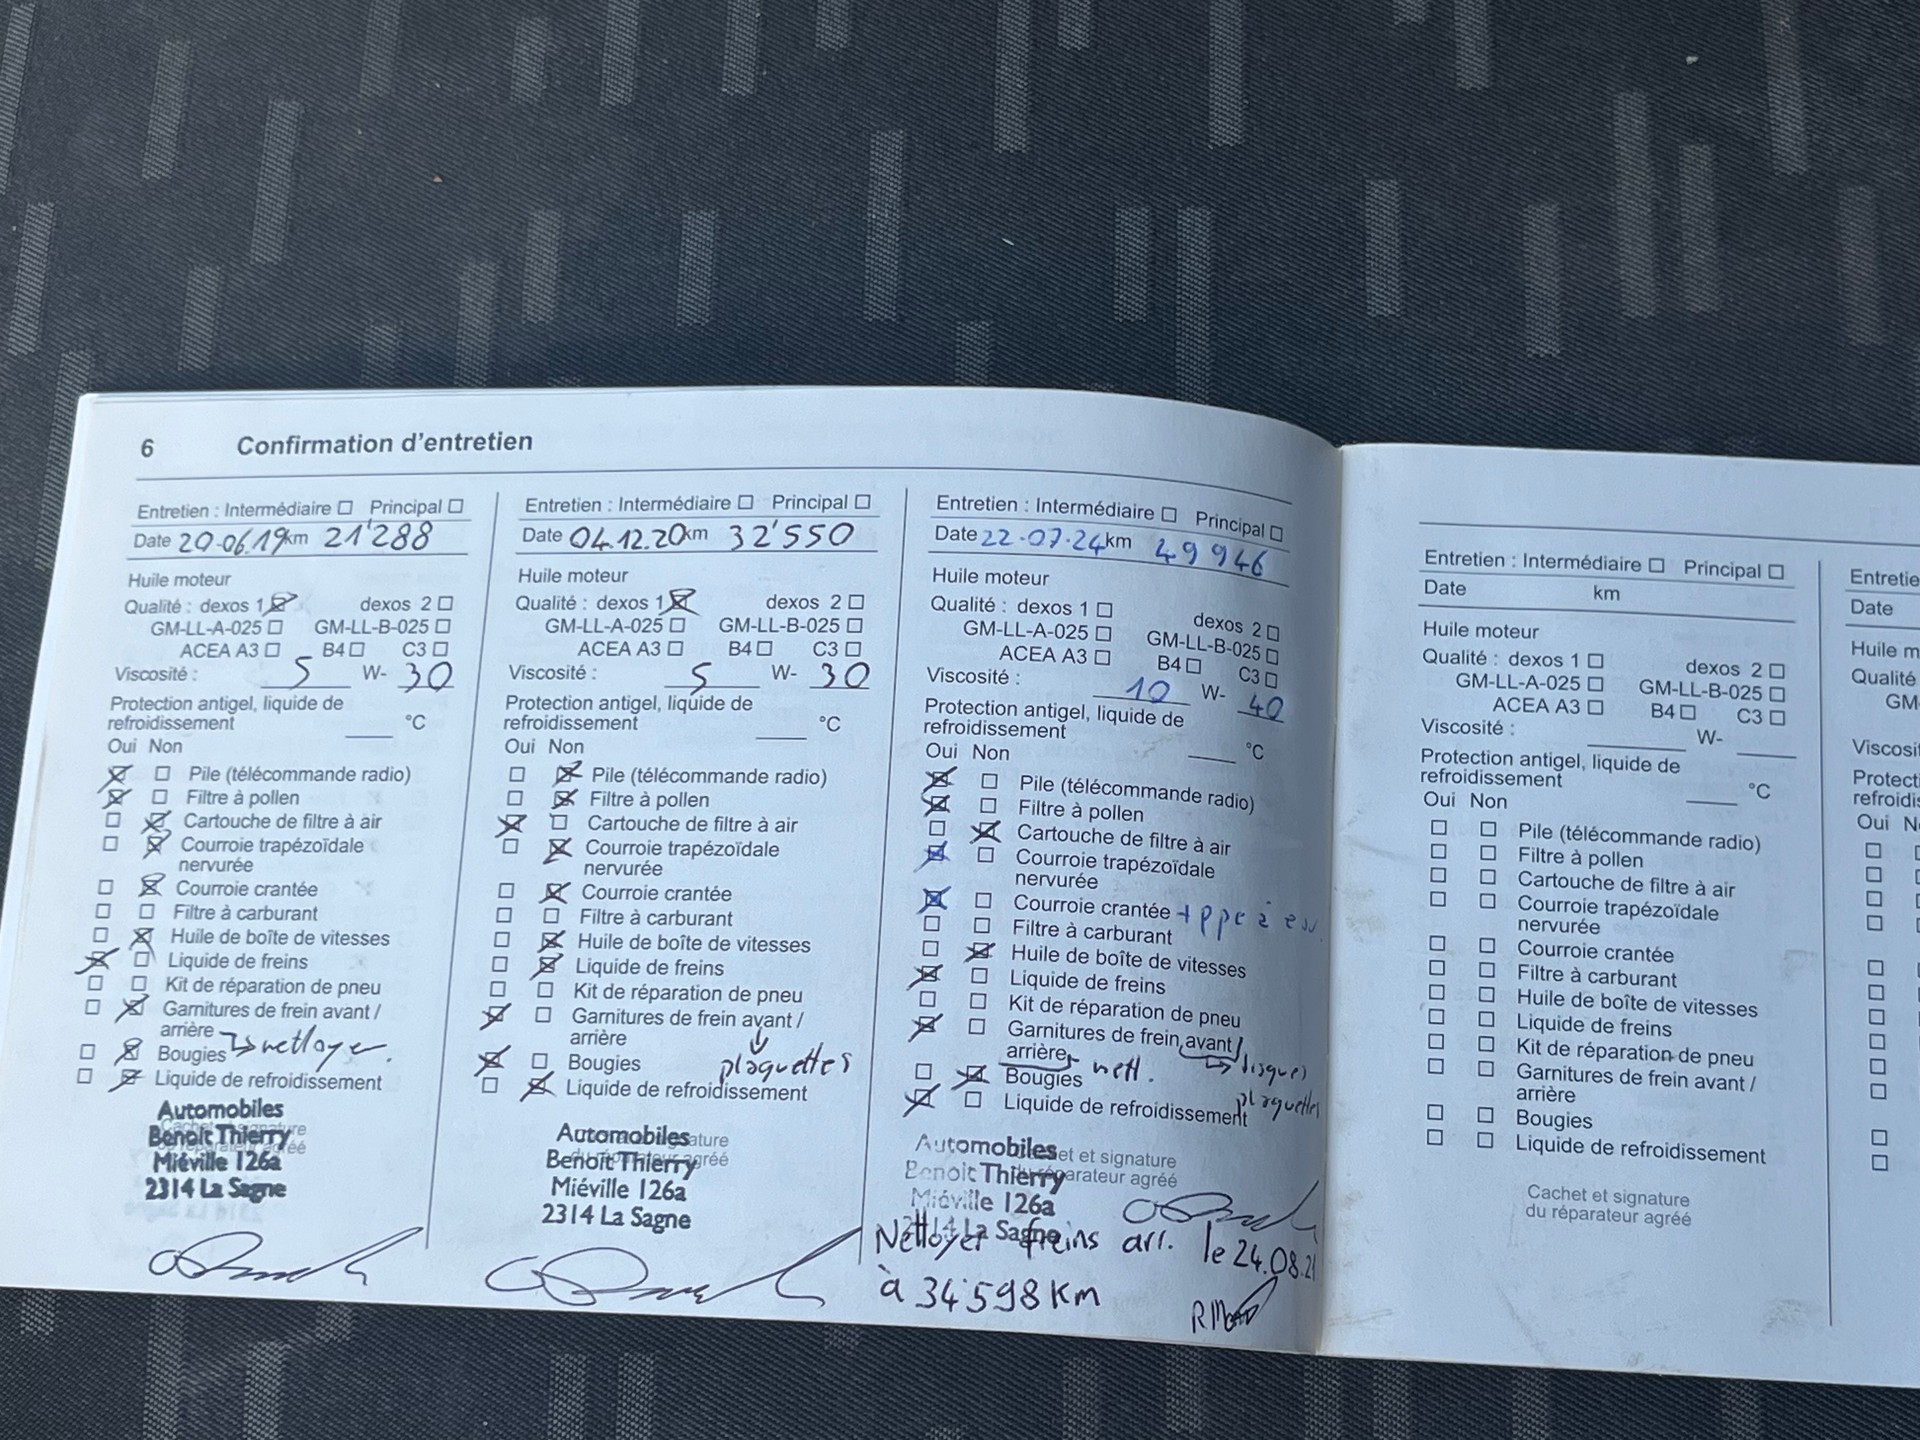 6 Confirmation d'entretien
Entretien : Intermédiaire ☐ Principal ☐
Date 20.06.19 km 21'288
Huile moteur
Qualité : dexos 1 ☒ dexos 2 ☐
GM-LL-A-025 ☐ GM-LL-B-025 ☐
ACEA A3 ☐ B4 ☐ C3 ☐
Viscosité : 5 W- 30
Protection antigel, liquide de
refroidissement ____ °C
Oui Non
☒ ☐ Pile (télécommande radio)
☒ ☐ Filtre à pollen
☐ ☒ Cartouche de filtre à air
☐ ☒ Courroie trapézoïdale
nervurée
☐ ☒ Courroie crantée
☐ ☐ Filtre à carburant
☐ ☒ Huile de boîte de vitesses
☒ ☐ Liquide de freins
☐ ☐ Kit de réparation de pneu
☐ ☒ Garnitures de frein avant /
arrière → nettoyer.
☐ ☒ Bougies
☐ ☒ Liquide de refroidissement
Automobiles
Benoit Thierry
Miéville 126a
2314 La Sagne
Entretien : Intermédiaire ☐ Principal ☐
Date 04.12.20 km 32'550
Huile moteur
Qualité : dexos 1 ☒ dexos 2 ☐
GM-LL-A-025 ☐ GM-LL-B-025 ☐
ACEA A3 ☐ B4 ☐ C3 ☐
Viscosité : 5 W- 30
Protection antigel, liquide de
refroidissement ____ °C
Oui Non
☐ ☒ Pile (télécommande radio)
☐ ☒ Filtre à pollen
☒ ☐ Cartouche de filtre à air
☐ ☒ Courroie trapézoïdale
nervurée
☐ ☒ Courroie crantée
☐ ☐ Filtre à carburant
☐ ☒ Huile de boîte de vitesses
☐ ☒ Liquide de freins
☐ ☐ Kit de réparation de pneu
☒ ☐ Garnitures de frein avant /
arrière
☒ ☐ Bougies plaquettes
☐ ☒ Liquide de refroidissement
Automobiles
Benoit Thierry
Miéville 126a
2314 La Sagne
Entretien : Intermédiaire ☐ Principal ☐
Date 22.07.24 km 49946
Huile moteur
Qualité : dexos 1 ☐ dexos 2 ☐
GM-LL-A-025 ☐ GM-LL-B-025 ☐
ACEA A3 ☐ B4 ☐ C3 ☐
Viscosité : 10 W- 40
Protection antigel, liquide de
refroidissement ____ °C
Oui Non
☒ ☐ Pile (télécommande radio)
☒ ☐ Filtre à pollen
☐ ☒ Cartouche de filtre à air
☒ ☐ Courroie trapézoïdale
nervurée
☒ ☐ Courroie crantée + ppe à eau
☐ ☐ Filtre à carburant
☐ ☒ Huile de boîte de vitesses
☒ ☐ Liquide de freins
☐ ☐ Kit de réparation de pneu
☒ ☐ Garnitures de frein avant /
arrière → nett. → disques
☐ ☒ Bougies plaquettes
☒ ☐ Liquide de refroidissement
Cachet et signature
du réparateur agréé
Automobiles
Benoit Thierry
Miéville 126a
2314 La Sagne
Nettoyer freins arr. le 24.08.21
à 34'598 Km
Entretien : Intermédiaire ☐ Principal ☐
Date km
Huile moteur
Qualité : dexos 1 ☐ dexos 2 ☐
GM-LL-A-025 ☐ GM-LL-B-025 ☐
ACEA A3 ☐ B4 ☐ C3 ☐
Viscosité : ____ W- ____
Protection antigel, liquide de
refroidissement ____ °C
Oui Non
☐ ☐ Pile (télécommande radio)
☐ ☐ Filtre à pollen
☐ ☐ Cartouche de filtre à air
☐ ☐ Courroie trapézoïdale
nervurée
☐ ☐ Courroie crantée
☐ ☐ Filtre à carburant
☐ ☐ Huile de boîte de vitesses
☐ ☐ Liquide de freins
☐ ☐ Kit de réparation de pneu
☐ ☐ Garnitures de frein avant /
arrière
☐ ☐ Bougies
☐ ☐ Liquide de refroidissement
Cachet et signature
du réparateur agréé
Entretie
Date
Huile m
Qualité
GM-
Viscosit
Protecti
refroidis
Oui N